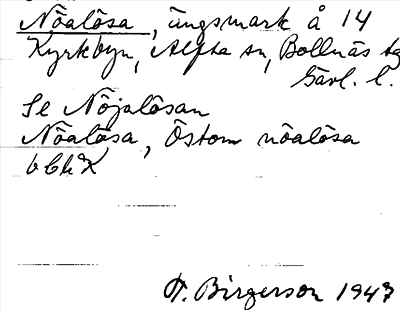 Nöalösa, ängsmark å 14
Kyrkbyn, Alfta sn, Bollnäs tg
Gävl. l.
Se Nöjalösan
Nöalösa, Östom nöalösa
T. Birgerson 1947